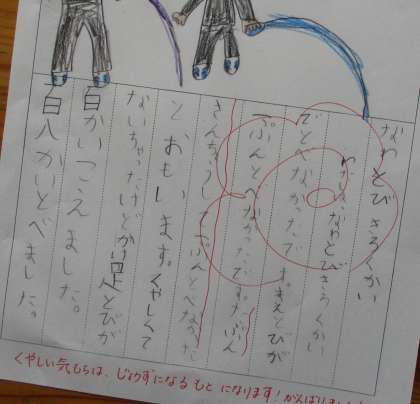 なわとびきろくかい
わたしは、なわとびきろくかい
でとべなかったです。まえとびが
一ぷんとべなかったです。たぶん
きんちょうして一ぷんとべなかった
とおもいます。くやしくて
ないちゃったけどかけ足とびが
百かいこえました。
百八かいとべました。
くやしい気もちは、じょうずになるもとになります!がんばりまし